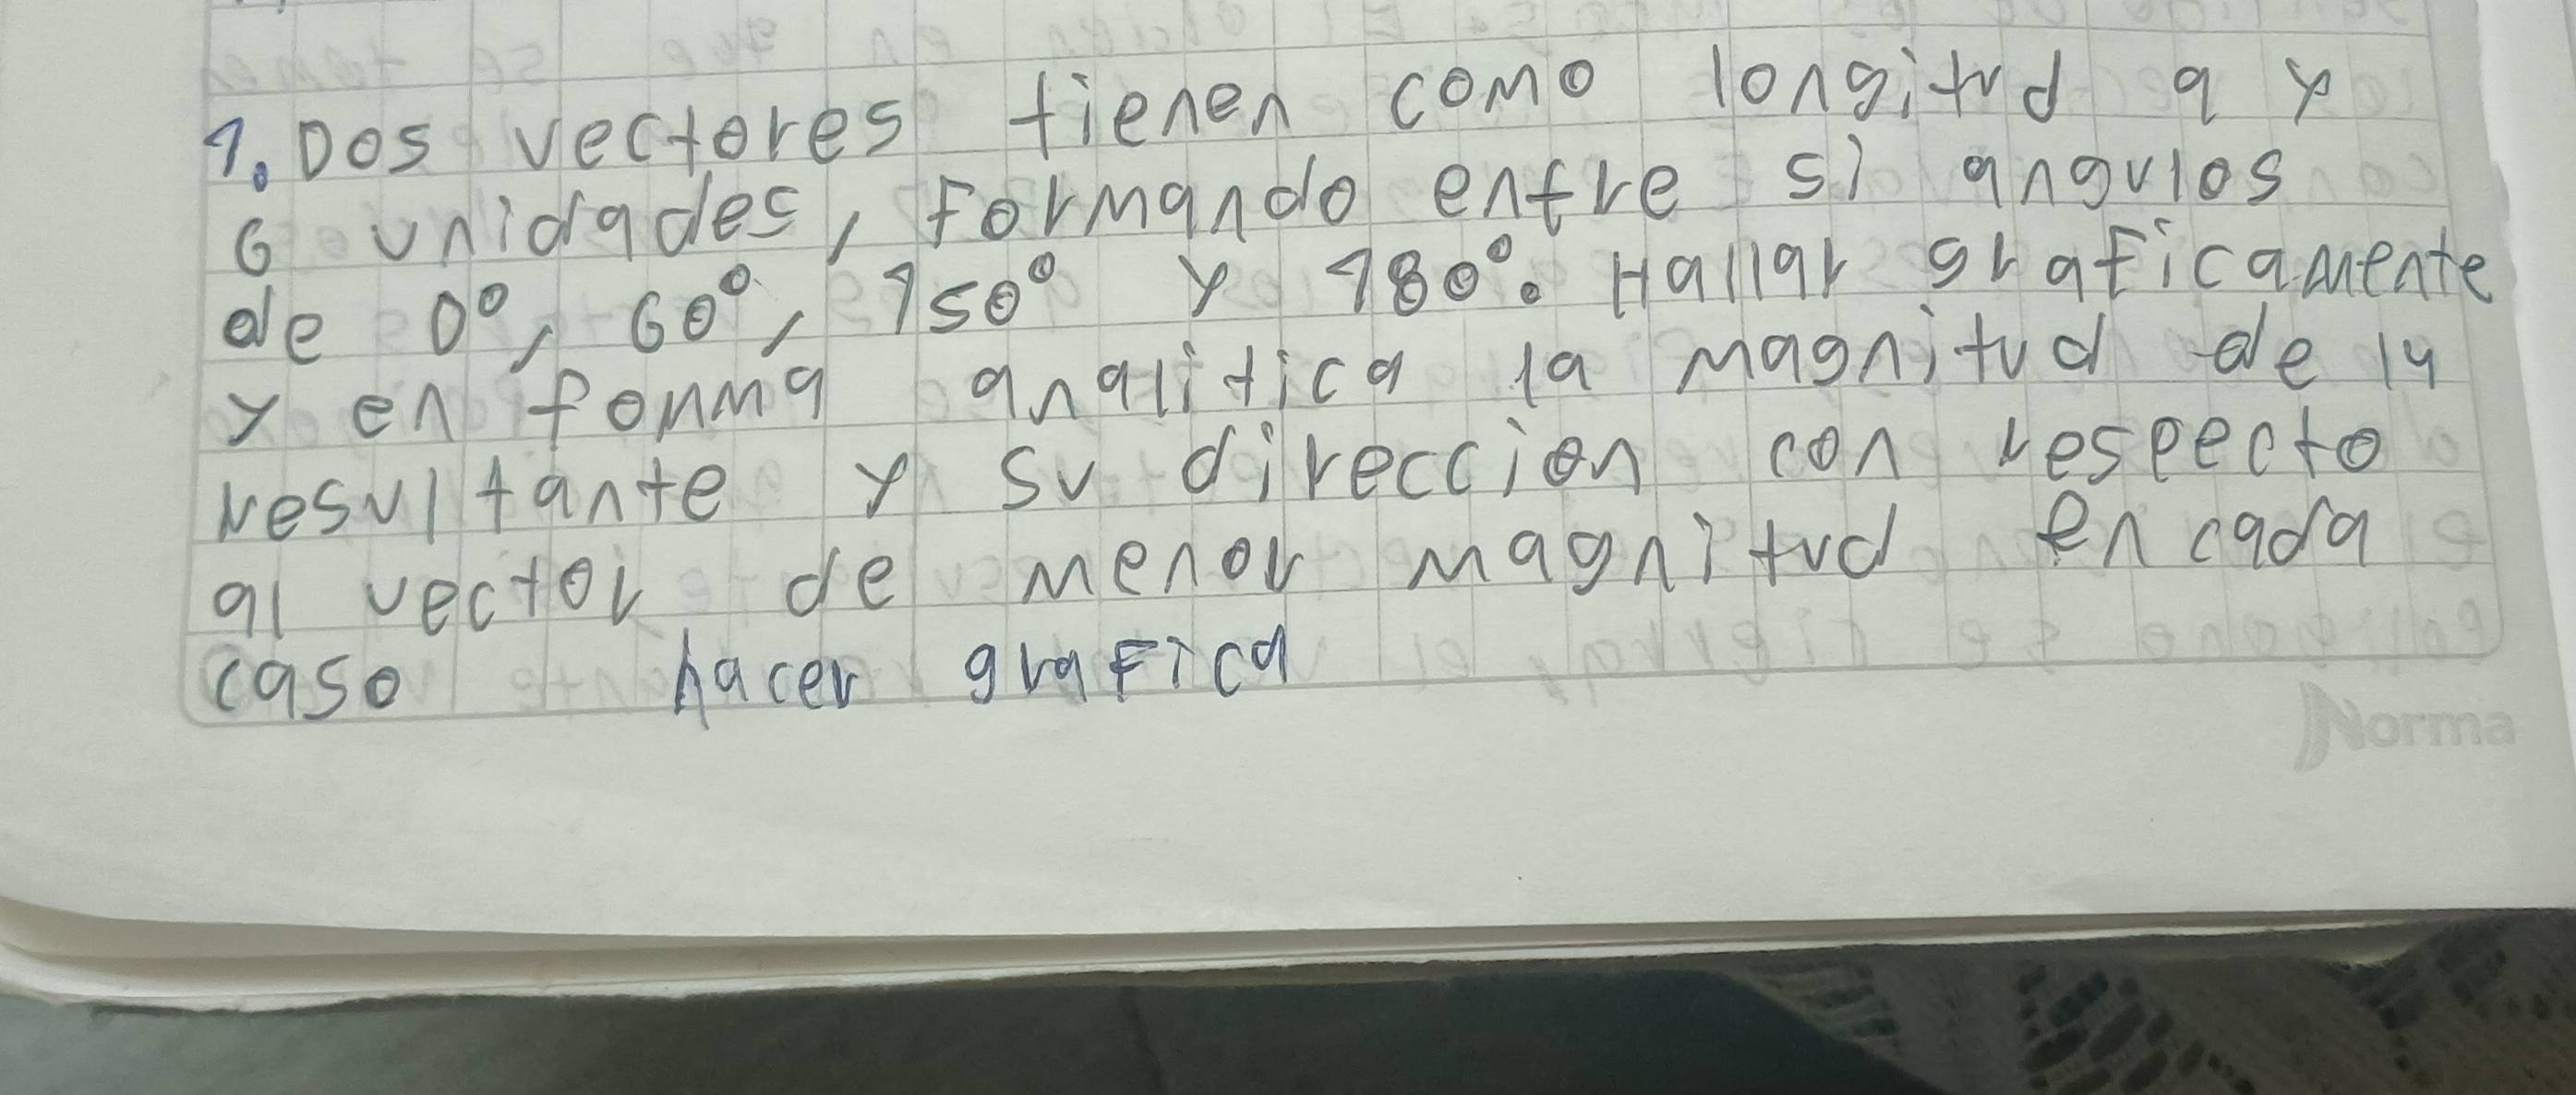 1. Dos vectores tienen como longitud 9 y
6 unidades, formando entre si angulos
de 0°, 60°, 150° y 180°. Hallar graficamente
y en forma analitica la magnitud de la
resultante y su direccion con respecto
al vector de menor magnitud en cada
caso hacer grafica
Norma